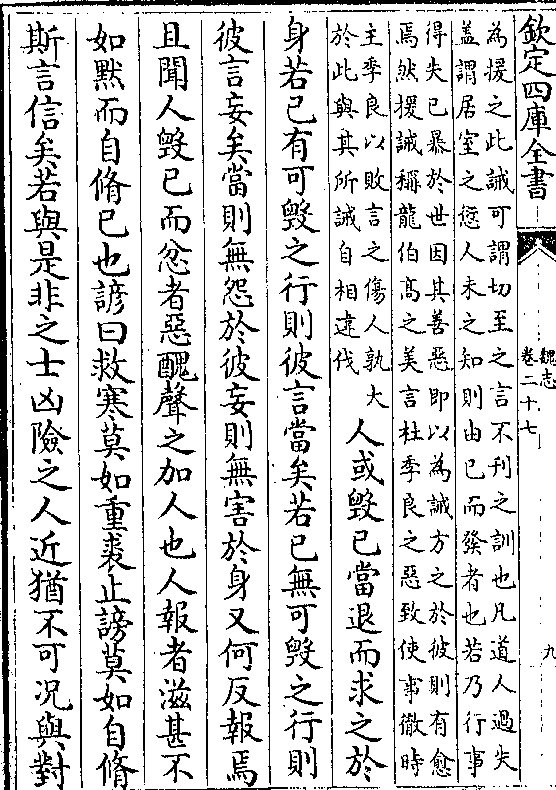 欽定四庫全書
魏志
卷二十七
九
為援之此誡可謂切至之言不刋之訓也凡道人過失
盖謂居室之愆人未之知則由已而發者也若乃行事
得失已暴於世因其善惡即以為誡方之於彼則有愈
焉然援誡稱龍伯髙之美言杜季良之惡致使事徹時
主季良以敗言之傷人孰大
於此與其所誡自相違伐
人或毁已當退而求之於
身若已有可毁之行則彼言當矣若已無可毁之行則
彼言妄矣當則無怨於彼妄則無害於身又何反報焉
且聞人毁已而忿者惡醜聲之加人也人報者滋甚不
如黙而自脩已也諺曰救寒莫如重裘止謗莫如自脩
斯言信矣若與是非之士凶險之人近猶不可况與對